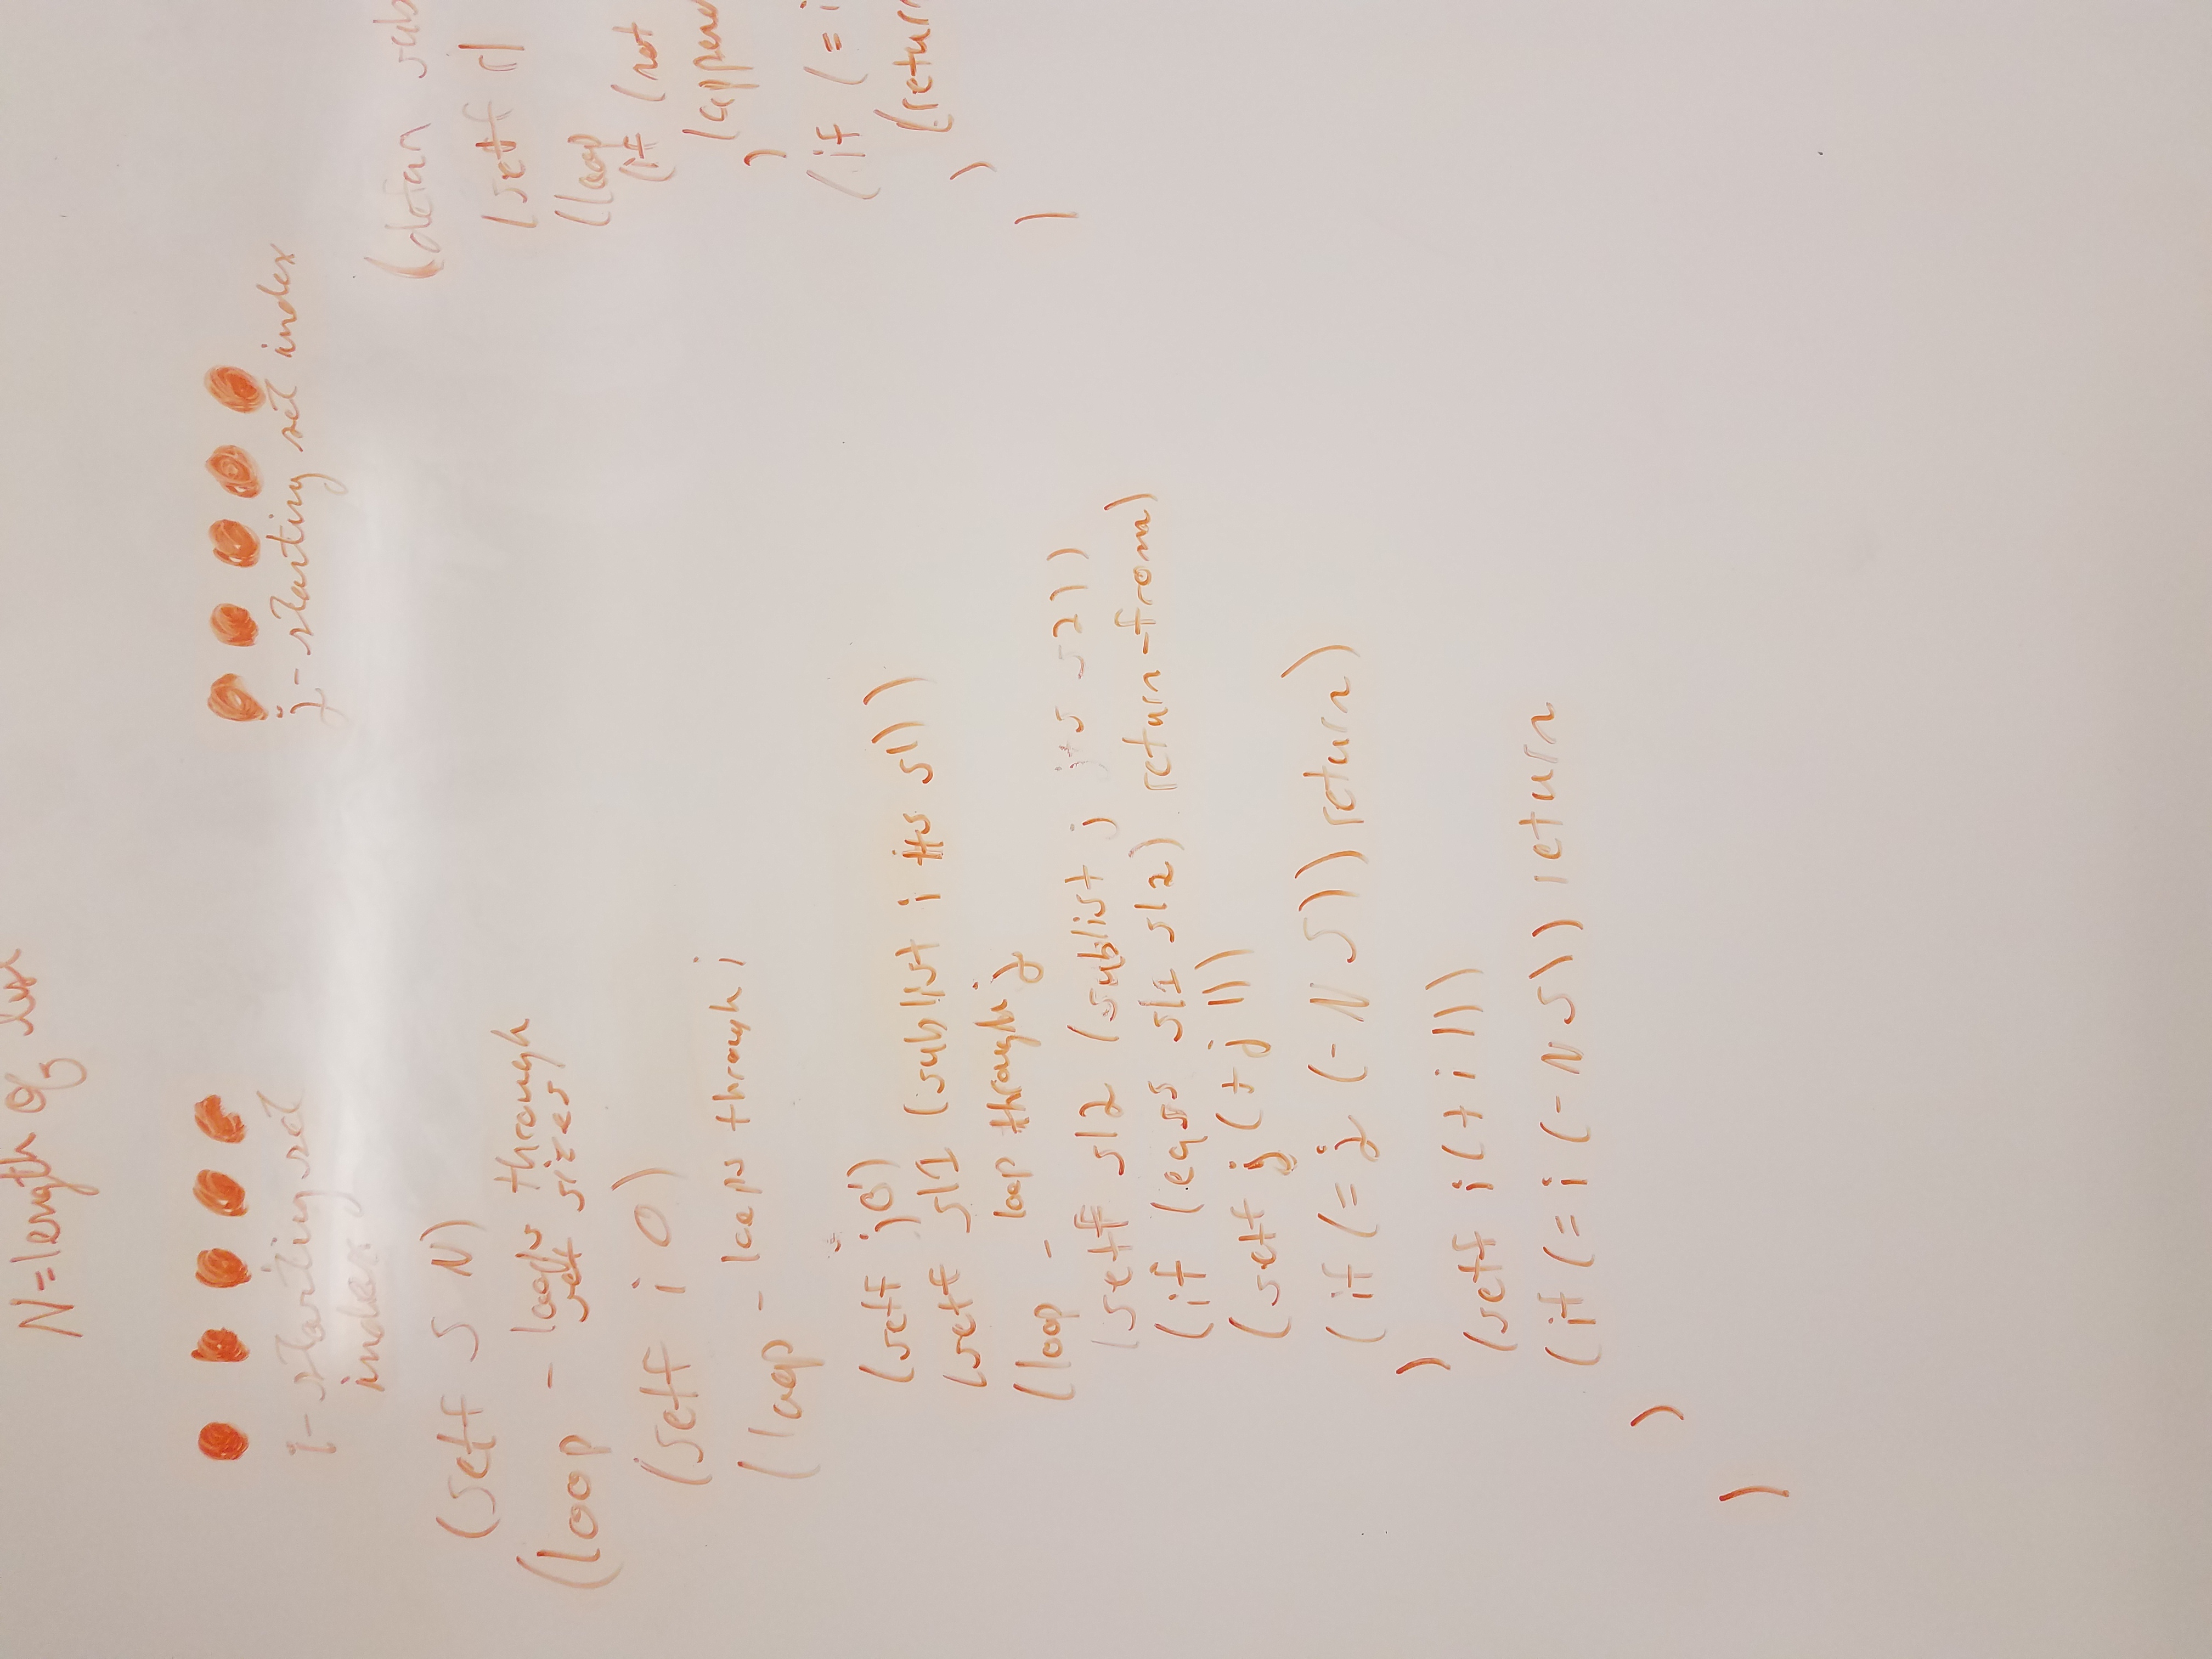 N=length of
i-starting set
index
j-starting set index
(setf S N)
(loop - loops through
set sizes
(setf i 0)
(loop - loops through i
(setf j 0)
(setf sl1 (sublist i i+s sl))
(loop - loop through j
(setf sl2 (sublist j j+s s2))
(if (eqss sl1 sl2) return-from)
(setf j (+ j 1))
(if (= j (- N S)) return)
)
(setf i (+ i 1))
(if (= i (- N S)) return
)
)
(defun sub
(setf
(loop
(if (not
(append
)
(if (= i
(return
)
)